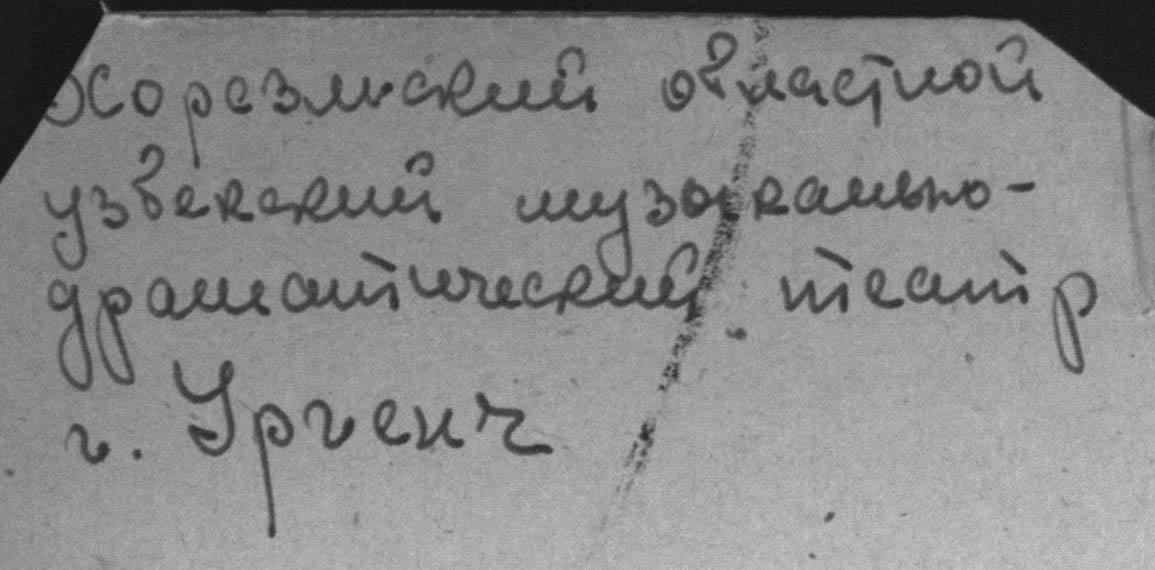 Хорезмский областной
узбекский музыкально-
драматический театр
г. Ургенч